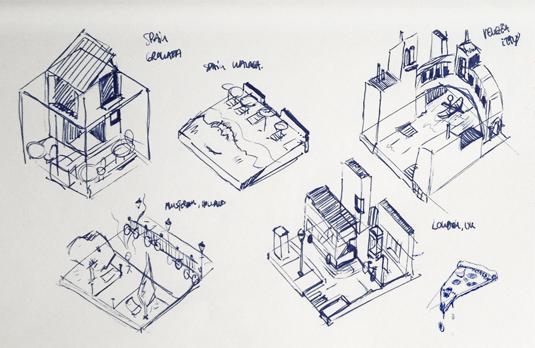 SPAIN
GRANADA
SPAIN MALAGA.
VENEZIA
ITALY
AMSTERDAM, HOLLAND
LONDON, UK